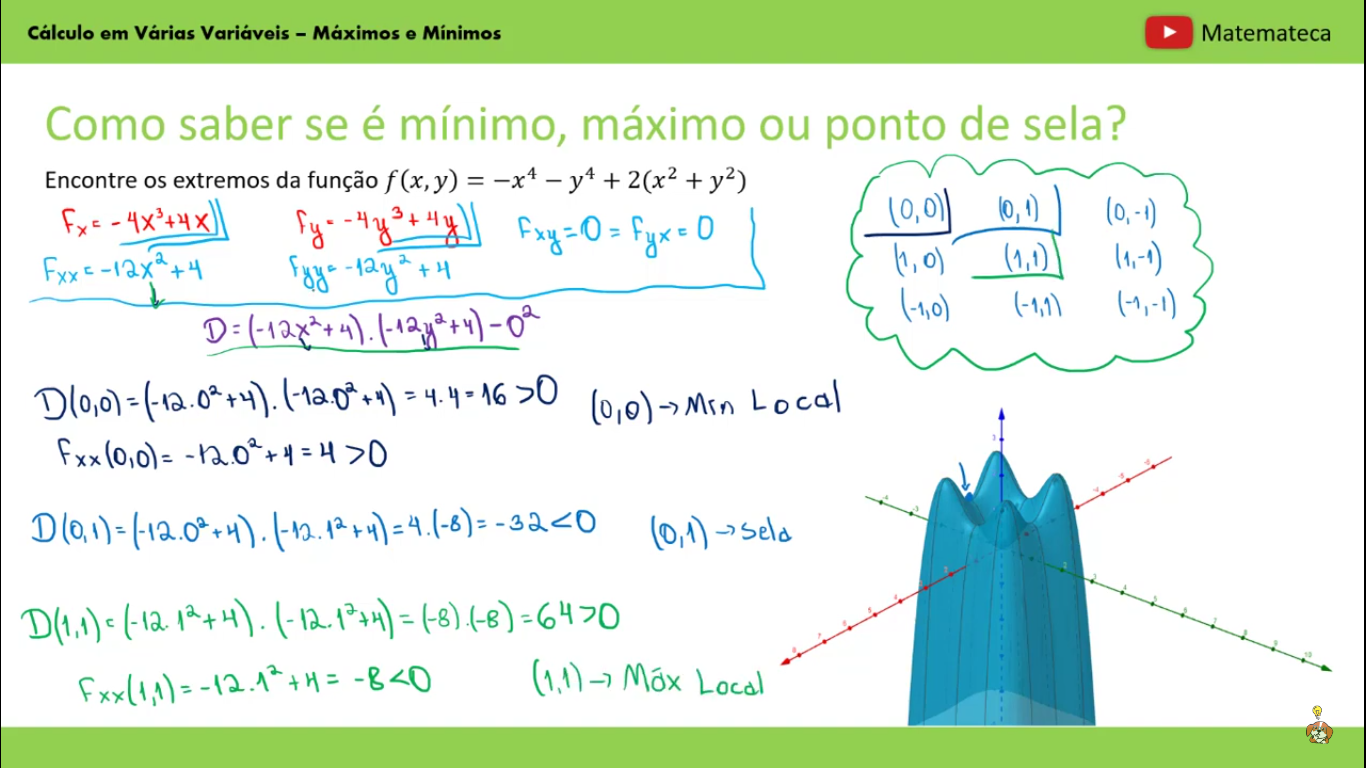 Cálculo em Várias Variáveis – Máximos e Mínimos
Matemateca
Como saber se é mínimo, máximo ou ponto de sela?
Encontre os extremos da função f(x, y) = −x⁴ − y⁴ + 2(x² + y²)
Fx = -4x³+4x
Fy = -4y³+4y
Fxy = 0 = Fyx = 0
Fxx = -12x²+4
Fyy = -12y²+4
D = (-12x²+4).(-12y²+4) - 0²
(0,0) (0,1) (0,-1)
(1,0) (1,1) (1,-1)
(-1,0) (-1,1) (-1,-1)
D(0,0) = (-12.0²+4).(-12.0²+4) = 4.4 = 16 >0
(0,0) → Mín Local
Fxx(0,0) = -12.0²+4 = 4 >0
D(0,1) = (-12.0²+4).(-12.1²+4) = 4.(-8) = -32 <0
(0,1) → Sela
D(1,1) = (-12.1²+4).(-12.1²+4) = (-8).(-8) = 64 >0
Fxx(1,1) = -12.1²+4 = -8 <0
(1,1) → Máx Local